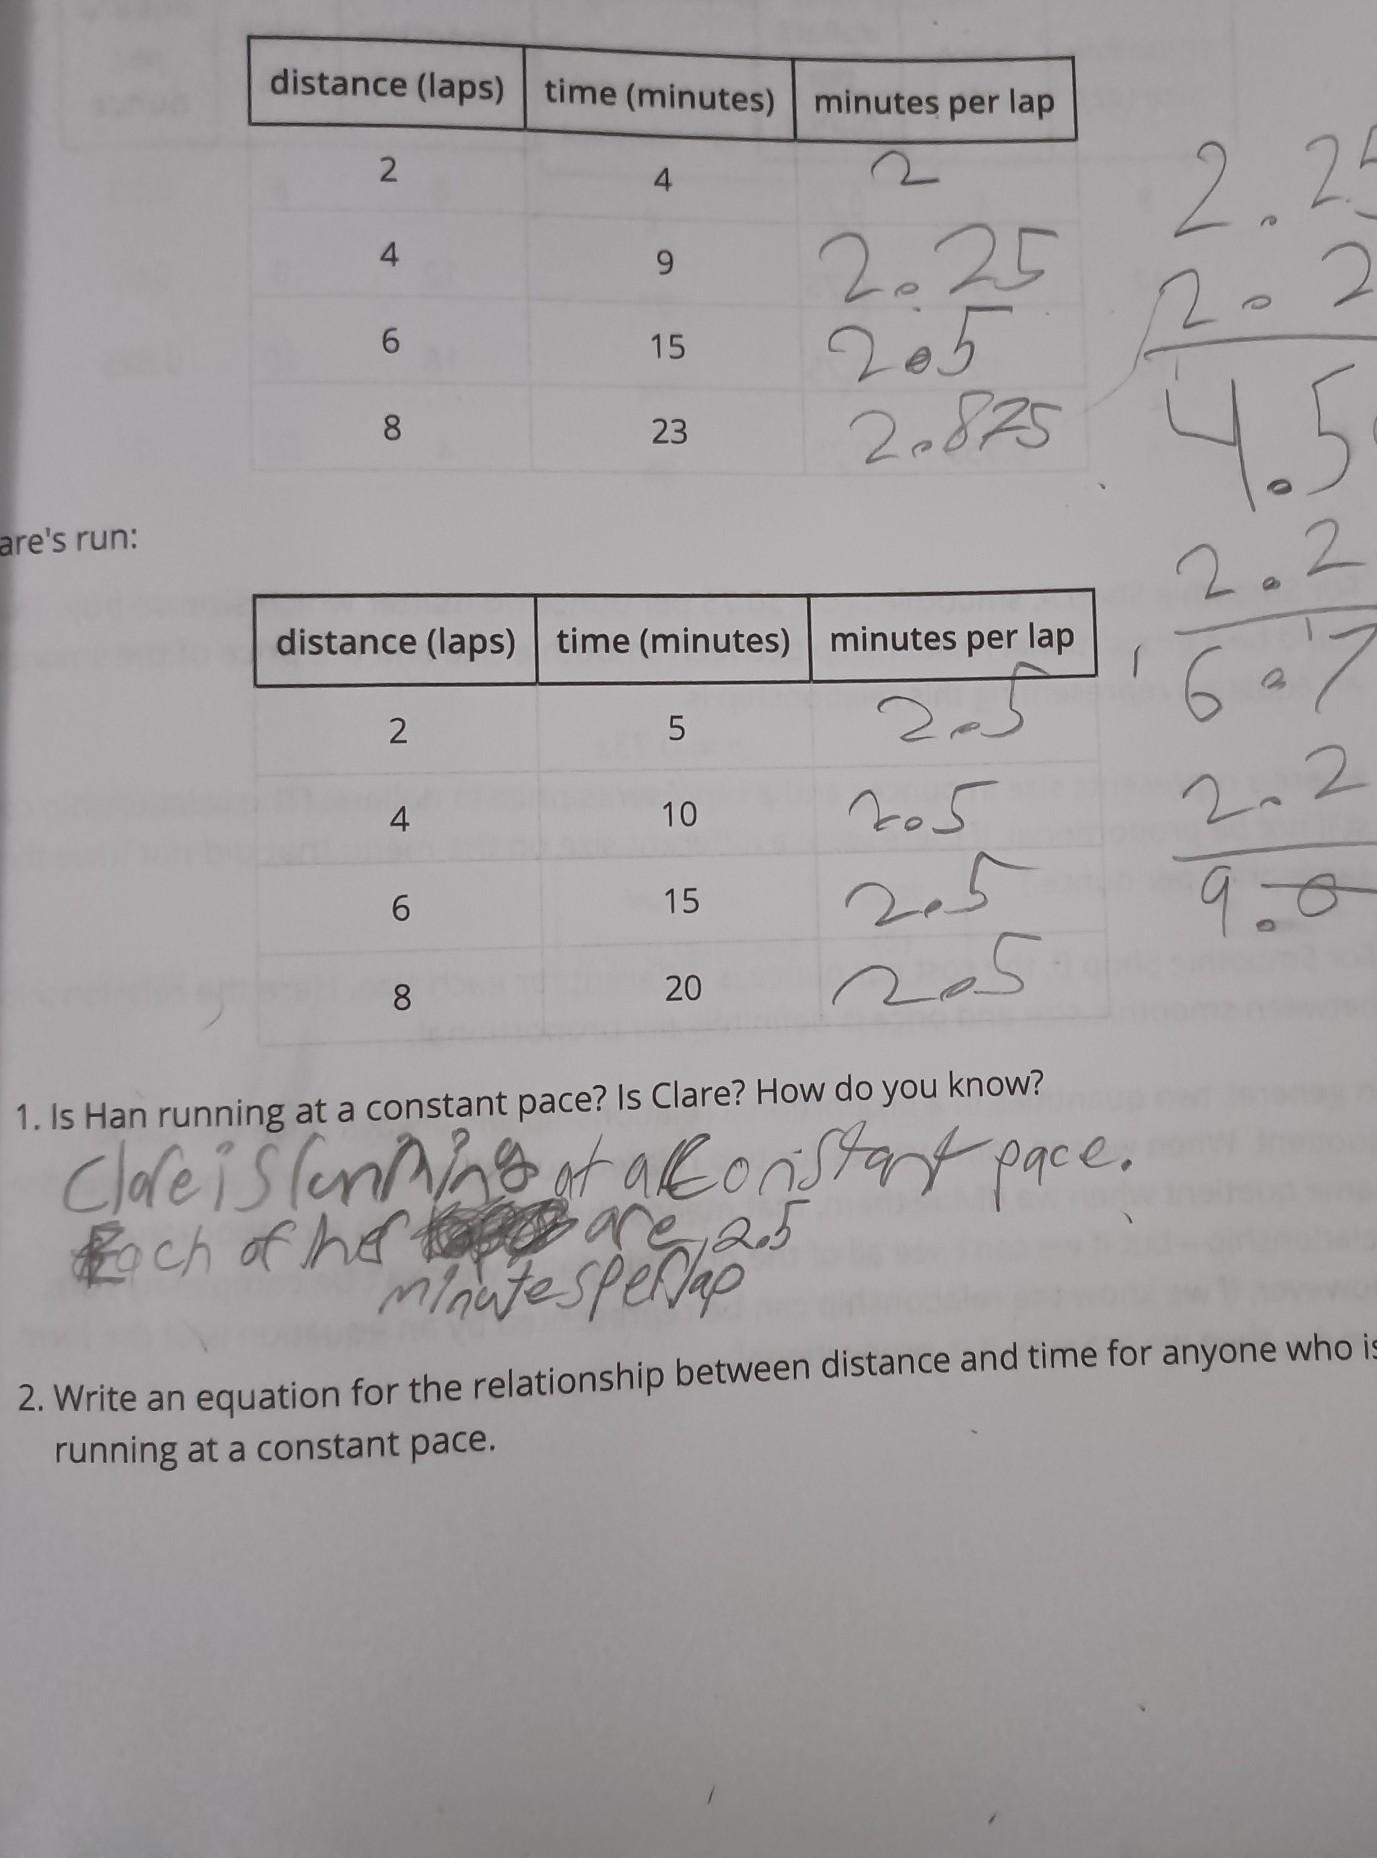 distance (laps) time (minutes) minutes per lap
2 4 2
4 9 2.25
6 15 2.5
8 23 2.875
2.25
2.2
4.5
2.2
6.7
2.2
9.0
are's run:
distance (laps) time (minutes) minutes per lap
2 5 2.5
4 10 2.5
6 15 2.5
8 20 2.5
1. Is Han running at a constant pace? Is Clare? How do you know?
Clare is running at a constant pace.
Each of her are 2.5
minutes per lap
2. Write an equation for the relationship between distance and time for anyone who is
running at a constant pace.